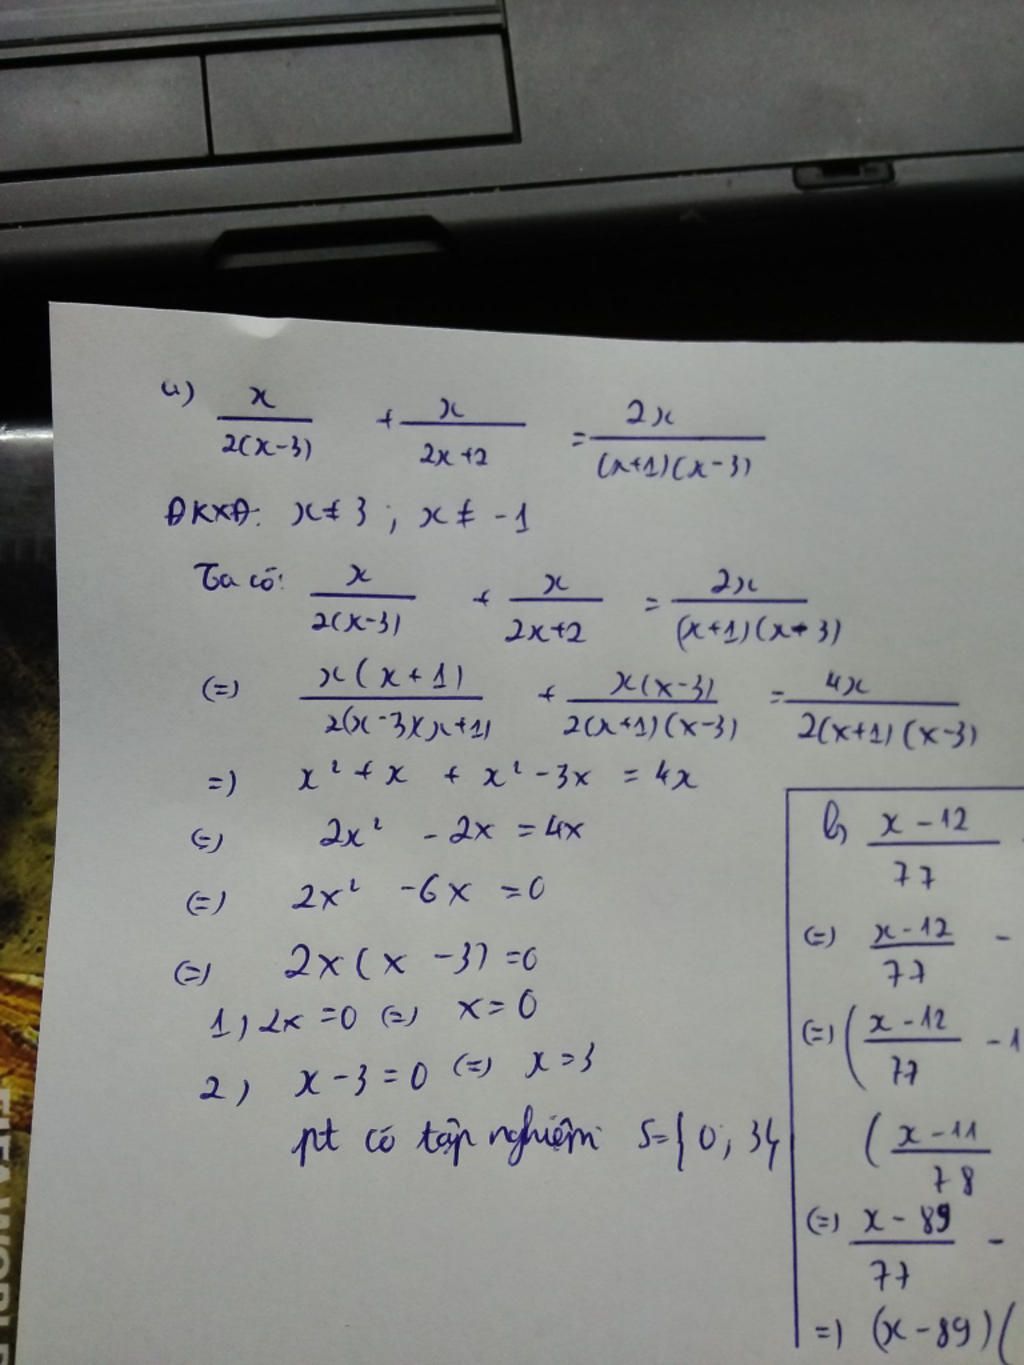 a) x/2(x-3) + x/2x+2 = 2x/(x+1)(x-3)
ĐKXĐ: x≠3 ; x≠ -1
Ta có: x/2(x-3) + x/2x+2 = 2x/(x+1)(x-3)
(=) x(x+1)/2(x-3)(x+1) + x(x-3)/2(x+1)(x-3) = 4x/2(x+1)(x-3)
=) x² + x + x² - 3x = 4x
(=) 2x² - 2x = 4x
(=) 2x² - 6x = 0
(=) 2x(x - 3) = 0
1) 2x = 0 (=) x = 0
2) x - 3 = 0 (=) x = 3
pt có tập nghiệm S={0; 3}
b, x - 12/77
(=) x - 12/77 -
(=) (x - 12/77 - 1
(x - 11/78
(=) x - 89/77 -
=) (x - 89)(